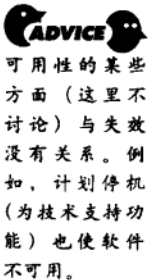 ADVICE
可用性的某些
方面（这里不
讨论）与失效
没有关系。例
如，计划停机
(为技术支持功
能）也使软件
不可用。